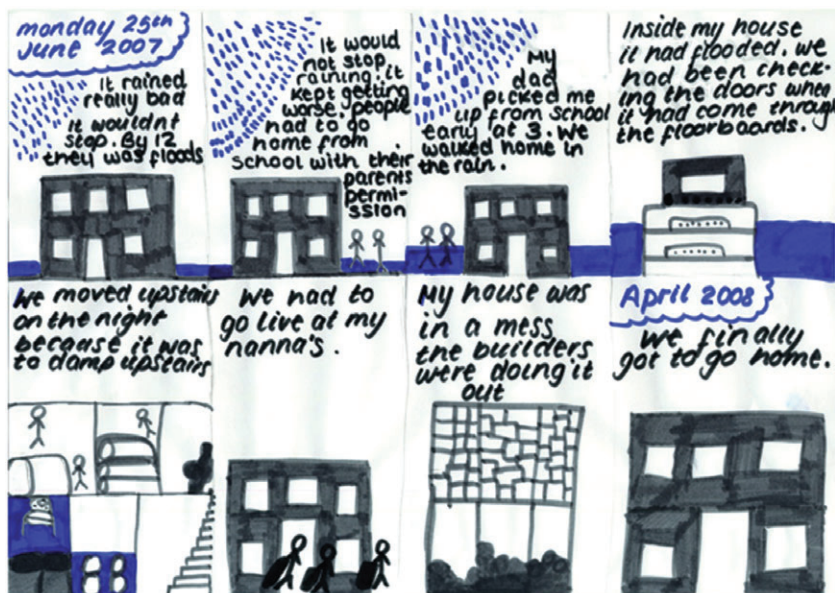 monday 25th
June 2007
It rained
really bad
It wouldnt
stop. By 12
they was floods
It would
not stop
raining. it
kept getting
worse. people
had to go
home from
school with their
parents
permi-
ssion
My
dad
picked me
up from school
early at 3. We
walked home in
the rain.
Inside my house
it had flooded. we
had been check-
ing the doors when
it had come through
the floorboards.
We moved upstairs
on the night
because it was
to damp upstairs
We had to
go live at my
nanna's.
My house was
in a mess
the builders
were doing it
out
April 2008
We finally
got to go home.